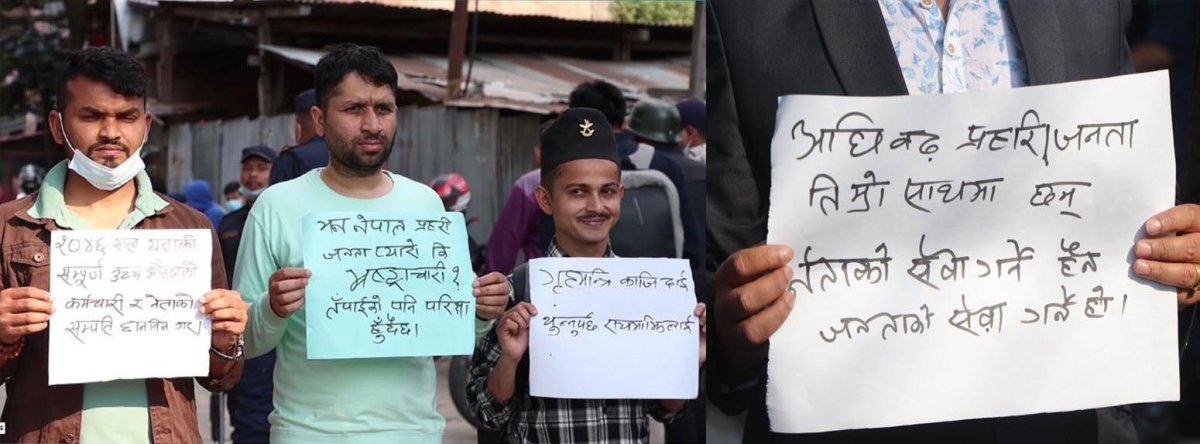 २०४६ साल यताका
सम्पूर्ण उच्च ओहदाका
कर्मचारी र नेताको
सम्पति छानविन गर।
भन नेपाल प्रहरी
जनता प्यारो कि
भ्रष्टाचारी?
तँपाईको पनि परिक्षा
हुँदैछ।
गृहमन्त्रि काजि दाई
थुन्नुपर्छ
अघि बढ प्रहरी, जनता
तिम्रो साथमा छन्
नेताको सेवा गर्ने हैन
जनताको सेवा गर्ने हो।